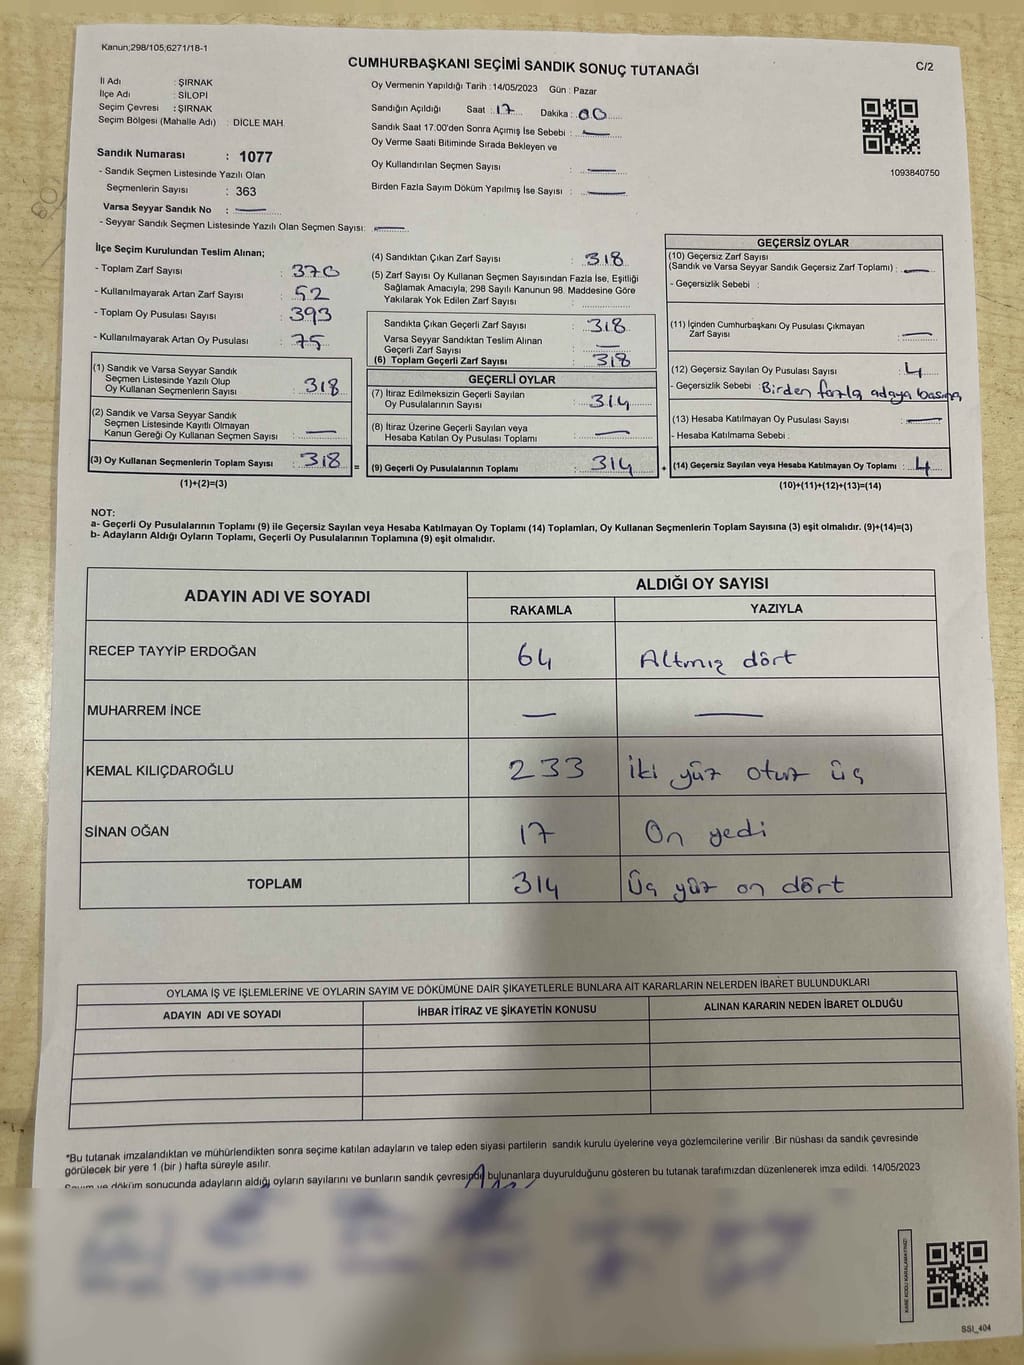 Kanun;298/105;6271/18-1
CUMHURBAŞKANI SEÇİMİ SANDIK SONUÇ TUTANAĞI
C/2
İl Adı : ŞIRNAK
İlçe Adı : SİLOPİ
Seçim Çevresi : ŞIRNAK
Seçim Bölgesi (Mahalle Adı) : DİCLE MAH.
Oy Vermenin Yapıldığı Tarih : 14/05/2023 Gün : Pazar
Sandığın Açıldığı Saat : 17 Dakika : 00
Sandık Saat 17.00'den Sonra Açımış İse Sebebi : —
Oy Verme Saati Bitiminde Sırada Bekleyen ve
Oy Kullandırılan Seçmen Sayısı : —
Birden Fazla Sayım Döküm Yapılmış İse Sayısı : —
1093840750
Sandık Numarası : 1077
- Sandık Seçmen Listesinde Yazılı Olan
Seçmenlerin Sayısı : 363
Varsa Seyyar Sandık No : —
- Seyyar Sandık Seçmen Listesinde Yazılı Olan Seçmen Sayısı: —
İlçe Seçim Kurulundan Teslim Alınan;
- Toplam Zarf Sayısı : 370
- Kullanılmayarak Artan Zarf Sayısı : 52
- Toplam Oy Pusulası Sayısı : 393
- Kullanılmayarak Artan Oy Pusulası : 75
(1) Sandık ve Varsa Seyyar Sandık
Seçmen Listesinde Yazılı Olup
Oy Kullanan Seçmenlerin Sayısı : 318
(2) Sandık ve Varsa Seyyar Sandık
Seçmen Listesinde Kayıtlı Olmayan
Kanun Gereği Oy Kullanan Seçmen Sayısı : —
(3) Oy Kullanan Seçmenlerin Toplam Sayısı : 318 =
(1)+(2)=(3)
(4) Sandıktan Çıkan Zarf Sayısı : 318
(5) Zarf Sayısı Oy Kullanan Seçmen Sayısından Fazla İse, Eşitliği
Sağlamak Amacıyla; 298 Sayılı Kanunun 98. Maddesine Göre
Yakılarak Yok Edilen Zarf Sayısı :
Sandıkta Çıkan Geçerli Zarf Sayısı : 318
Varsa Seyyar Sandıktan Teslim Alınan
Geçerli Zarf Sayısı : —
(6) Toplam Geçerli Zarf Sayısı : 318
GEÇERLİ OYLAR
(7) İtiraz Edilmeksizin Geçerli Sayılan
Oy Pusulalarının Sayısı : 314
(8) İtiraz Üzerine Geçerli Sayılan veya
Hesaba Katılan Oy Pusulası Toplamı : —
(9) Geçerli Oy Pusulalarının Toplamı : 314 +
GEÇERSİZ OYLAR
(10) Geçersiz Zarf Sayısı
(Sandık ve Varsa Seyyar Sandık Geçersiz Zarf Toplamı) : —
- Geçersizlik Sebebi :
(11) İçinden Cumhurbaşkanı Oy Pusulası Çıkmayan
Zarf Sayısı : —
(12) Geçersiz Sayılan Oy Pusulası Sayısı : 4
- Geçersizlik Sebebi : Birden fazla adaya basma
(13) Hesaba Katılmayan Oy Pusulası Sayısı : —
- Hesaba Katılmama Sebebi :
(14) Geçersiz Sayılan veya Hesaba Katılmayan Oy Toplamı : 4
(10)+(11)+(12)+(13)=(14)
NOT:
a- Geçerli Oy Pusulalarının Toplamı (9) ile Geçersiz Sayılan veya Hesaba Katılmayan Oy Toplamı (14) Toplamları, Oy Kullanan Seçmenlerin Toplam Sayısına (3) eşit olmalıdır. (9)+(14)=(3)
b- Adayların Aldığı Oyların Toplamı, Geçerli Oy Pusulalarının Toplamına (9) eşit olmalıdır.
ADAYIN ADI VE SOYADI
ALDIĞI OY SAYISI
RAKAMLA YAZIYLA
RECEP TAYYİP ERDOĞAN 64 Altmış dört
MUHARREM İNCE — —
KEMAL KILIÇDAROĞLU 233 iki yüz otuz üç
SİNAN OĞAN 17 On yedi
TOPLAM 314 Üç yüz on dört
OYLAMA İŞ VE İŞLEMLERİNE VE OYLARIN SAYIM VE DÖKÜMÜNE DAİR ŞİKAYETLERLE BUNLARA AİT KARARLARIN NELERDEN İBARET BULUNDUKLARI
ADAYIN ADI VE SOYADI İHBAR İTİRAZ VE ŞİKAYETİN KONUSU ALINAN KARARIN NEDEN İBARET OLDUĞU
*Bu tutanak imzalandıktan ve mühürlendikten sonra seçime katılan adayların ve talep eden siyasi partilerin sandık kurulu üyelerine veya gözlemcilerine verilir .Bir nüshası da sandık çevresinde
görülecek bir yere 1 (bir ) hafta süreyle asılır.
Sayım ve döküm sonucunda adayların aldığı oyların sayılarını ve bunların sandık çevresinde bulunanlara duyurulduğunu gösteren bu tutanak tarafımızdan düzenlenerek imza edildi. 14/05/2023
KARE KODU KARALAMAYINIZ!
SSI_404